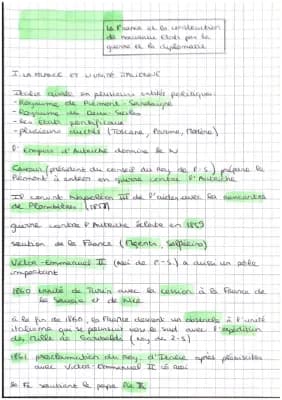 La France et la construction
de nouveaux Etats par la
guerre et la diplomatie
I. LA FRANCE ET L'UNITÉ ITALIENNE
Italie divisée en plusieurs entités politiques:
- Royaume de Piémont-Sardaigne
- Royaume des Deux-Siciles
- Les Etats pontificaux
- plusieurs duchés (Toscane, Parme, Modène)
L'Empire d'Autriche domine le N
Cavour (président du conseil du roy de P-S) prépare le
Piémont à entrer en guerre contre l'Autriche
Il convint Napoléon III de l'aider avec les rencontres
de Plombières (1858)
guerre contre l'Autriche éclate en 1859
soutien de la France (Magenta, Solférino)
Victor-Emmanuel II (roi de P.-S.) a aussi un rôle
important
1860 traité de Turin avec la cession à la France de
la Savoie et de Nice
à la fin de 1860, la France devient un obstacle à l'unité
italienne qui se poursuit vers le sud avec l'expédition
des Mille de Garibaldi (roy de 2-S)
1861 proclamation du roy. d'Italie après plébiscites
avec Victor-Emmanuel II le roi
la Fr soutient le pape Pie IX